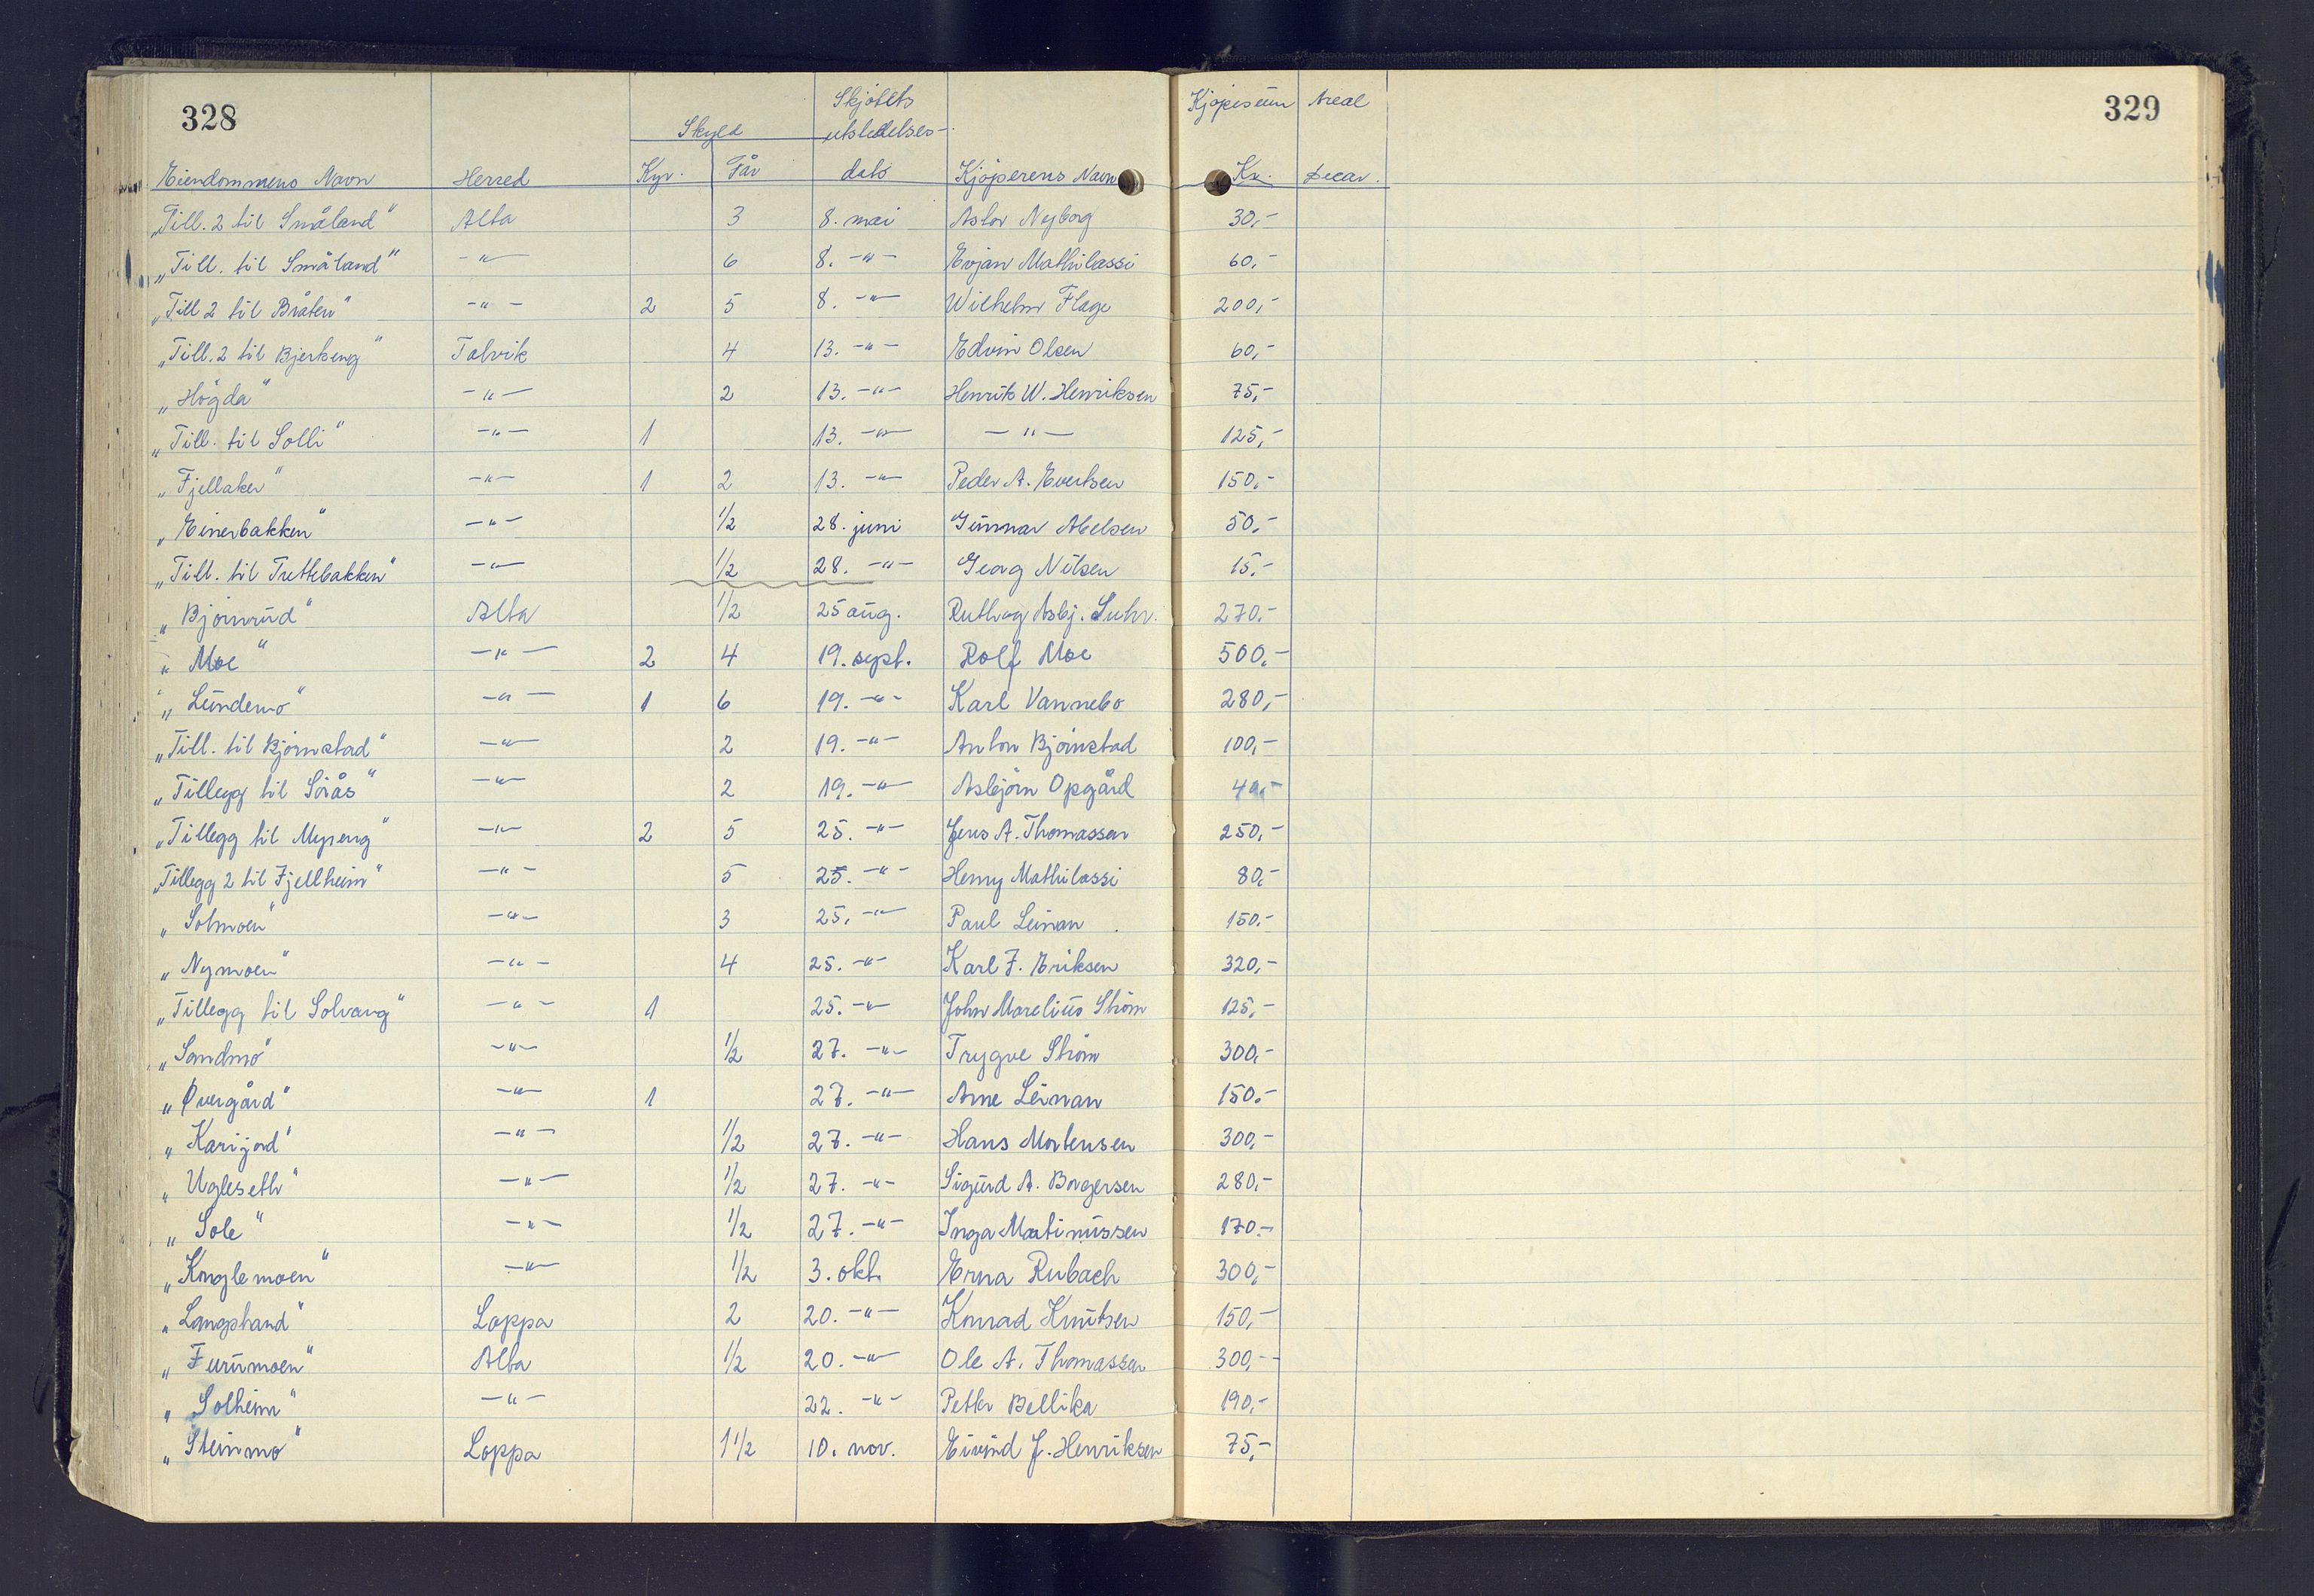 328
329
Skjötets Kjöpesum Areal
Skyld utstedelses-
Eiendommens Navn Herred Kyr. Får dato Kjöperens Navn Kr. Decar.
„Till. 2 til Småland" Alta 3 8. mai Aslov Nyborg 30,-
„Till. til Småland" -"- 6 8. -"- Evjan Mathilassi 60,-
„Till 2 til Bråten" -"- 2 5 8. -"- Wilhelm Flage 200,-
„Till. 2 til Bjerkeng" Talvik 4 13. -"- Edvin Olsen 60,-
„Högda" -"- 2 13. -"- Henrik W. Henriksen 75,-
„Till. til Solli" -"- 1 13. -"- -"- 125,-
„Fjellaker" -"- 1 2 13. -"- Peder A. Evertsen 150,-
„Einerbakken" -"- 1/2 28. juni Gunnar Abelsen 50,-
„Till. til Trettebakken" -"- 1/2 28. -"- Georg Nilsen 15,-
„Björnrud" Alta 1/2 25 aug. Ruth og Asbj. Suhr. 270.-
„Moe" -"- 2 4 19. sept. Rolf Moe 500,-
„Lundemo" -"- 1 6 19. -"- Karl Vannebo 280,-
„Till. til Björnstad" -"- 2 19. -"- Anton Björnstad 100,-
„Tillegg til Sörås" -"- 2 19. -"- Asbjörn Opgård 40,-
„Tillegg til Myreng" -"- 2 5 25. -"- Jens A. Thomassen 250,-
„Tillegg 2 til Fjellheim" -"- 5 25. -"- Henry Mathilassi 80,-
„Solmoen" -"- 3 25. -"- Paul Leinan 150.-
„Nymoen" -"- 4 25. -"- Karl F. Eriksen 320,-
„Tillegg til Solvang" -"- 1 25. -"- John Marelius Ström 125,-
„Sandmo" -"- 1/2 27. -"- Trygve Ström 300,-
„Øvergård" -"- 1 27. -"- Arne Leinan 150.-
„Karijord" -"- 1/2 27. -"- Hans Mortensen 300,-
„Ugleseth" -"- 1/2 27. -"- Sigurd A. Borgersen 280,-
„Sole" -"- 1/2 27. -"- Inga Matinussen 170.-
„Konglemoen" -"- 1/2 3. okt. Erna Rubach 300,-
„Langstrand" Loppa 2 20. -"- Konrad Knutsen 150,-
„Furumoen" Alta 1/2 20. -"- Ole A. Thomassen 300,-
„Solheim" -"- 22. -"- Petter Bellika 190,-
„Steinmo" Loppa 1 1/2 10. nov. Eivind J. Henriksen 75,-